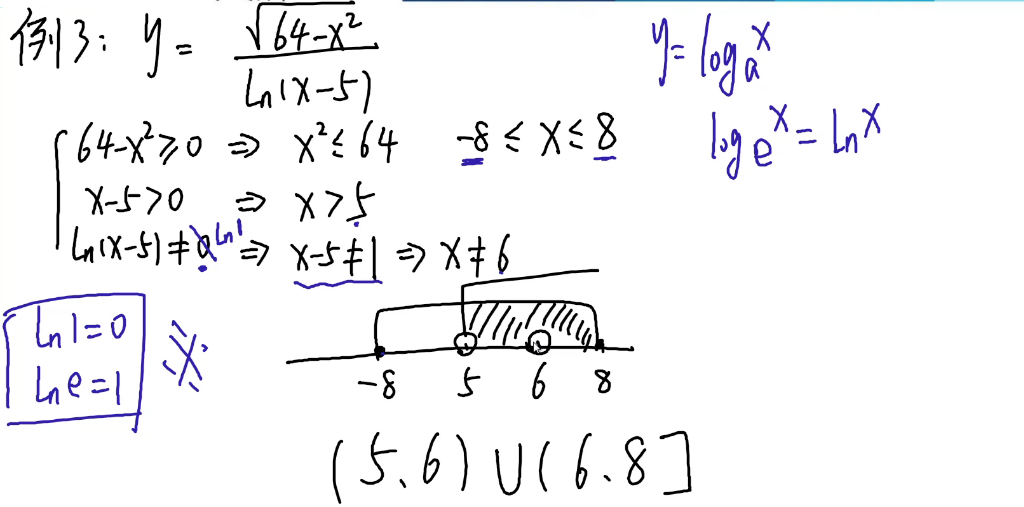 例3: y = √(64-x²) / ln(x-5)
y = logₐx
logₑx = lnx
{ 64-x² ≥ 0 ⇒ x² ≤ 64 -8 ≤ x ≤ 8
x-5 > 0 ⇒ x > 5
ln(x-5) ≠ 0 ln1 ⇒ x-5 ≠ 1 ⇒ x ≠ 6
ln1 = 0
lne = 1
-8 5 6 8
(5.6) ∪ (6.8]